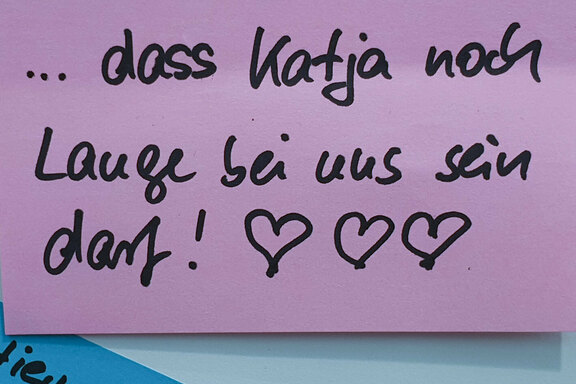 ... dass Katja noch
Lange bei uns sein
darf! ♡ ♡ ♡